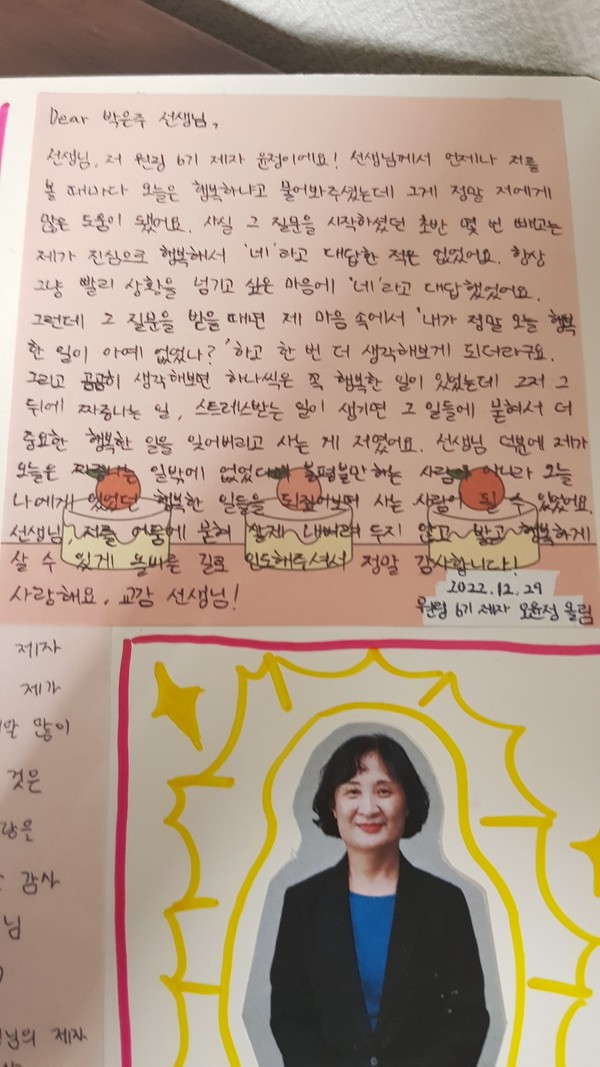 Dear 박은주 선생님,
선생님, 저 원림 6기 제자 윤정이에요! 선생님께서 언제나 저를
볼 때마다 오늘은 행복하냐고 물어봐주셨는데 그게 정말 저에게
많은 도움이 됐어요. 사실 그 질문을 시작하셨던 초반 몇 번 빼고는
제가 진심으로 행복해서 '네'라고 대답한 적은 없었어요. 항상
그냥 빨리 상황을 넘기고 싶은 마음에 '네'라고 대답했었어요.
그런데 그 질문을 받을 때면 제 마음 속에서 '내가 정말 오늘 행복
한 일이 아예 없었나?'하고 한 번 더 생각해보게 되더라구요.
그리고 곰곰히 생각해보면 하나씩은 꼭 행복한 일이 있었는데 그저 그
뒤에 짜증나는 일, 스트레스받는 일이 생기면 그 일들에 묻혀서 더
중요한 행복한 일을 잊어버리고 사는 게 저였어요. 선생님 덕분에 제가
오늘은 짜증나는 일밖에 없었다며 불평불만하는 사람이 아니라 오늘
나에게 있었던 행복한 일들을 되짚어보며 사는 사람이 될 수 있었어요.
선생님, 저를 어둠에 묻혀 살게 내버려 두지 않고 밝고 행복하게
살 수 있게 올바른 길로 인도해주셔서 정말 감사합니다!
사랑해요, 교감 선생님!
2022.12.29
원림 6기 제자 오윤정 올림
제자
제가
많이
것은
감사
님
님의 제자